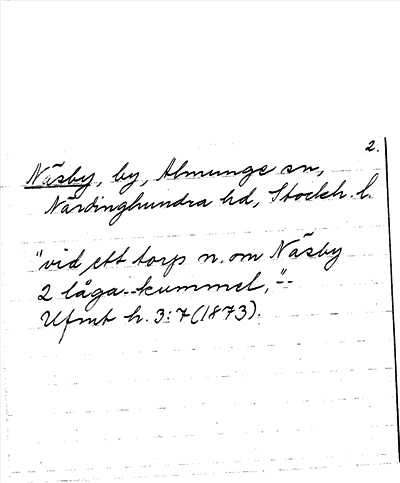 2.
Näsby, by, Almunge sn,
Närdinghundra hd, Stockh. l.
"vid ett torp n. om Näsby
2 låga -- kummel,"--
Ufmt h. 3:7 (1873).